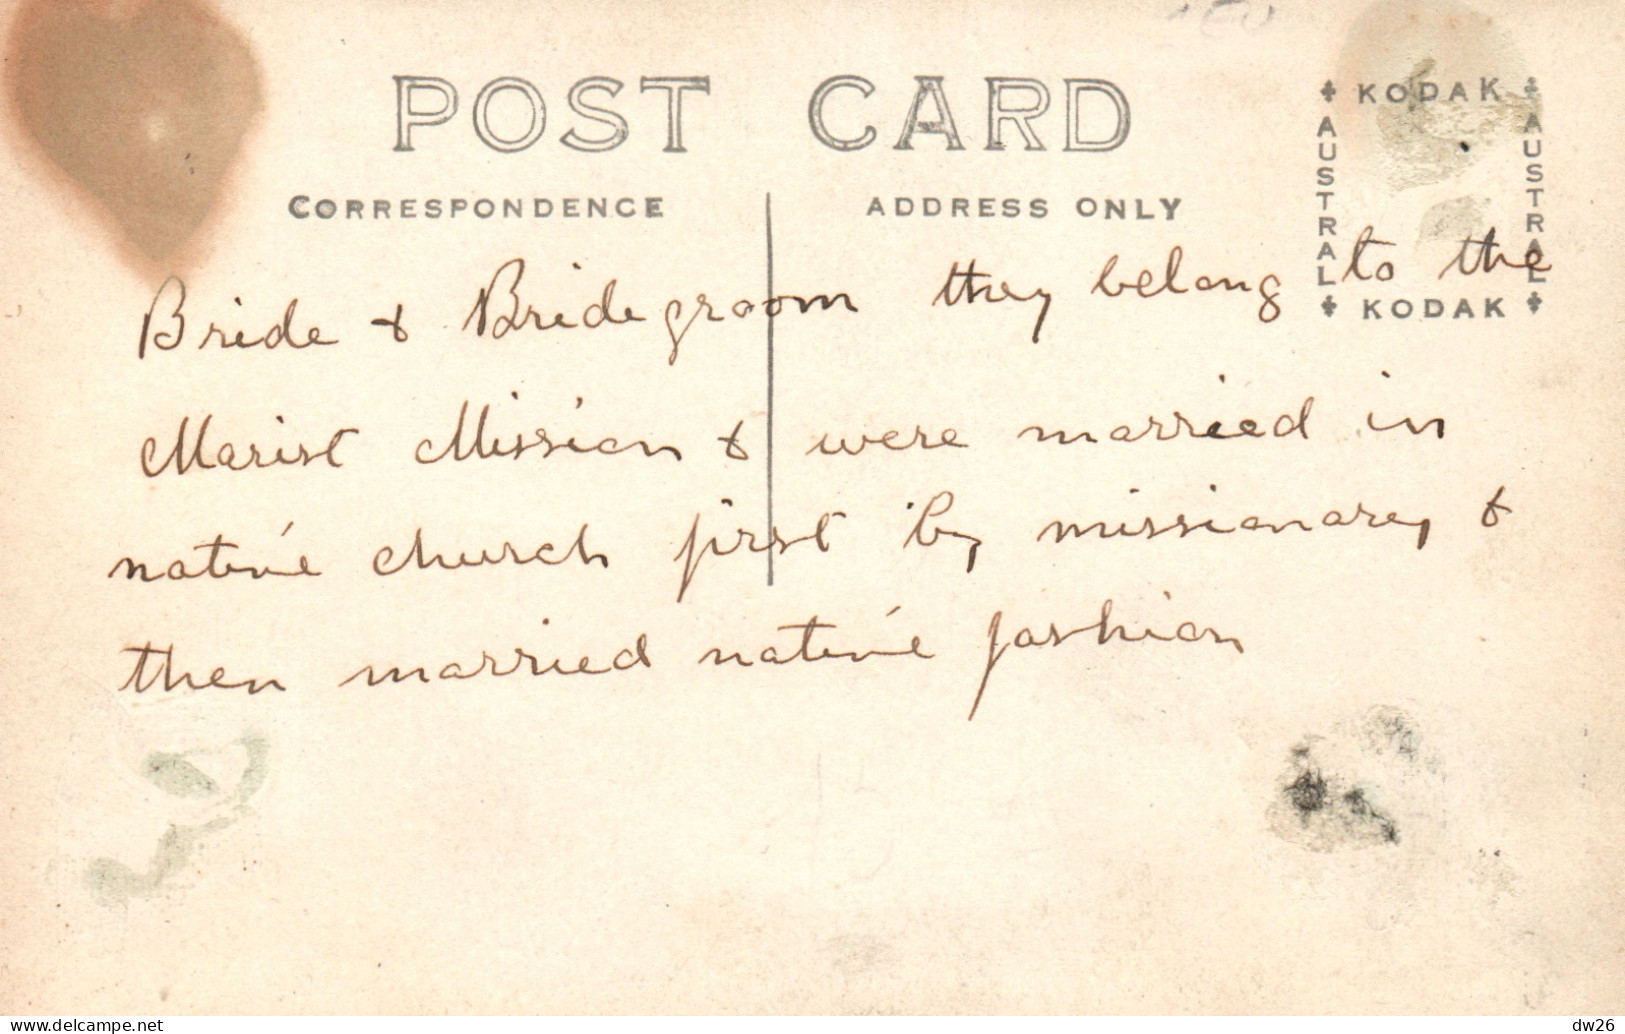 POST CARD
CORRESPONDENCE
ADDRESS ONLY
KODAK
AUSTRAL
AUSTRAL
KODAK
Bride & Bridegroom they belong to the
Marist Mission & were married in
native church first by missionary &
then married native fashion
dw26